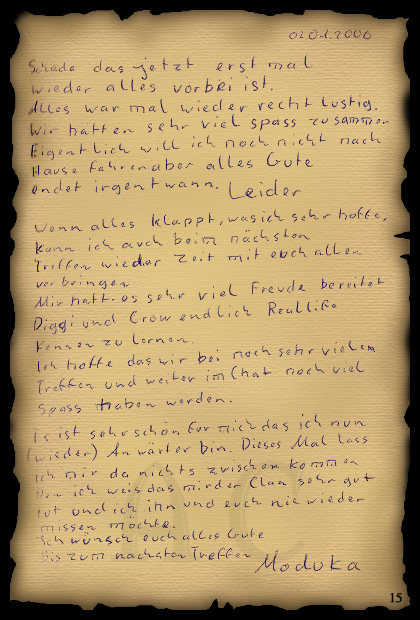 02.01.2006
Schade das jetzt erst mal
wieder alles vorbei ist.
Alles war mal wieder recht lustig.
Wir hatten sehr viel spass zusammen
Eigentlich will ich noch nicht nach
Hause fahren aber alles Gute
endet irgentwann. Leider
Wenn alles klappt, was ich sehr hoffe,
kann ich auch beim nächsten
Treffen wieder Zeit mit euch allen
verbringen
Mir hatt es sehr viel Freude bereitet
Diggi und Crow endlich Reallife
kennen zu lernen.
Ich hoffe das wir bei noch sehr vielen
Treffen und weiter im Chat noch viel
Spass haben werden.
Es ist sehr schön für mich das ich nun
(wieder) Anwärter bin. Dieses Mal lass
ich mir da nichts zwischen kommen
Den ich weis das mir der Clan sehr gut
tut und ich ihn und euch nie wieder
missen möchte.
Ich wünsch euch alles Gute
Bis zum nächsten Treffen
Moduka
15